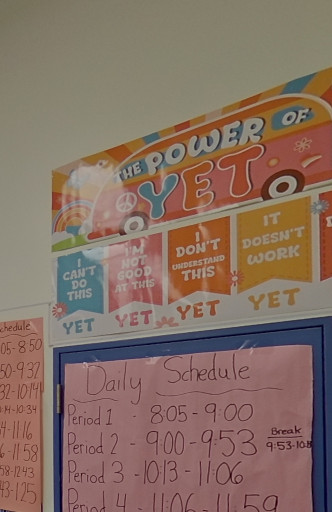 THE POWER OF
YET
I CAN'T DO THIS
YET
I'M NOT GOOD AT THIS
YET
I DON'T UNDERSTAND THIS
YET
IT DOESN'T WORK
YET
chedule
05-8:50
50-9:37
32-10:14
10:14-10:34
4-11:16
6-11:58
58-12:43
43-1:25
Daily Schedule
Period 1 - 8:05 - 9:00
Period 2 - 9:00 - 9:53
Break
9:53-10:
Period 3 - 10:13 - 11:06
Period 4 - 11:06 - 11:59